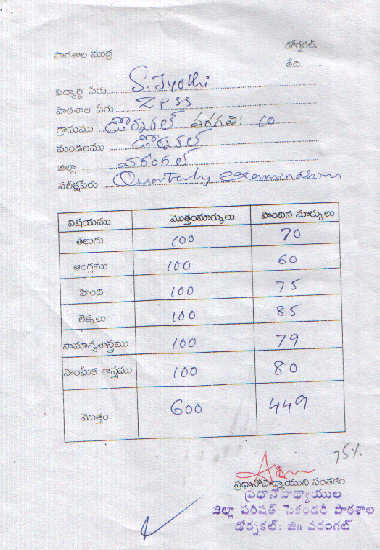 పాఠశాల ముద్ర
డోర్నకల్
తేది
విద్యార్థి పేరు S. Jyothi
పాఠశాల పేరు ZPSS
గ్రామము డోర్నకల్ తరగతి: 10
మండలము డోర్నకల్
జిల్లా వరంగల్
పరీక్షపేరు Quarterly Examination
విషయము మొత్తంమార్కులు పొందిన మార్కులు
తెలుగు 100 70
ఆంగ్లము 100 60
హింది 100 75
లెక్కలు 100 85
సామాన్యశాస్త్రము 100 79
సాంఘిక శాస్త్రము 100 80
మొత్తం 600 449
75%
ప్రధానోపాధ్యాయుని సంతకం
ప్రధానోపాధ్యాయుల
జిల్లా పరిషత్ సెకండరీ పాఠశాల
డోర్నకల్: జిల్లా వరంగల్